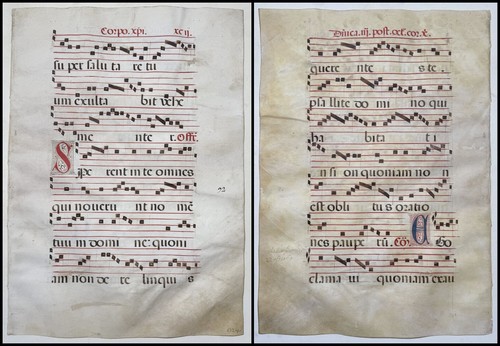 Corpo. xpi. xcii.
su per salu ta re tu
um exulta bit vehe
me nte r. Offr.
Spe rent in te omnes
qui noveru nt no mē
tuu m domi ne: quoni
am non de re linqui s
quere nte s te.
psallite do mi no qui
ha bita t i
n si on quoniam no n
est obli tu s oratio
nes paupe rū. Co. Ego
clama vi quoniam exau